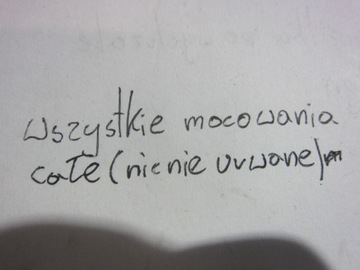 wszystkie mocowania
całe (nic nie urwane)